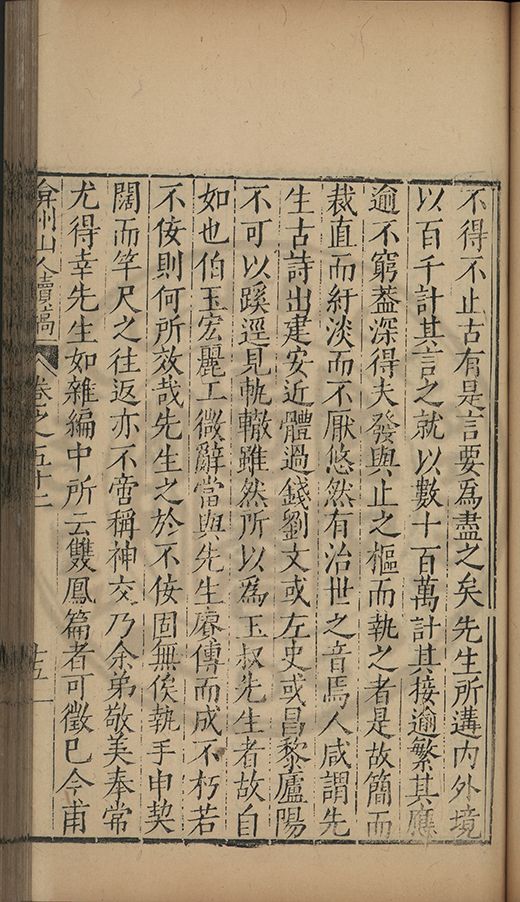 不得不止古有是言要爲盡之矣先生所遘內外境
以百千計其言之就以數十百萬計其接逾繁其應
逾不窮蓋深得夫發與止之樞而執之者是故簡而
裁直而紆淡而不厭悠然有治世之音焉人咸謂先
生古詩出建安近體過錢劉文或左史或昌黎廬陽
不可以蹊逕見軌轍雖然所以爲玉叔先生者故自
如也伯玉宏麗工微辭當與先生賡傳而成不朽若
不佞則何所效哉先生之於不佞固無俟執手申契
闊而竿尺之往返亦不啻稱神交乃余弟敬美奉常
尤得幸先生如雜編中所云雙鳳篇者可徵已今甫
弇州山人續稿 卷之五十二 十五